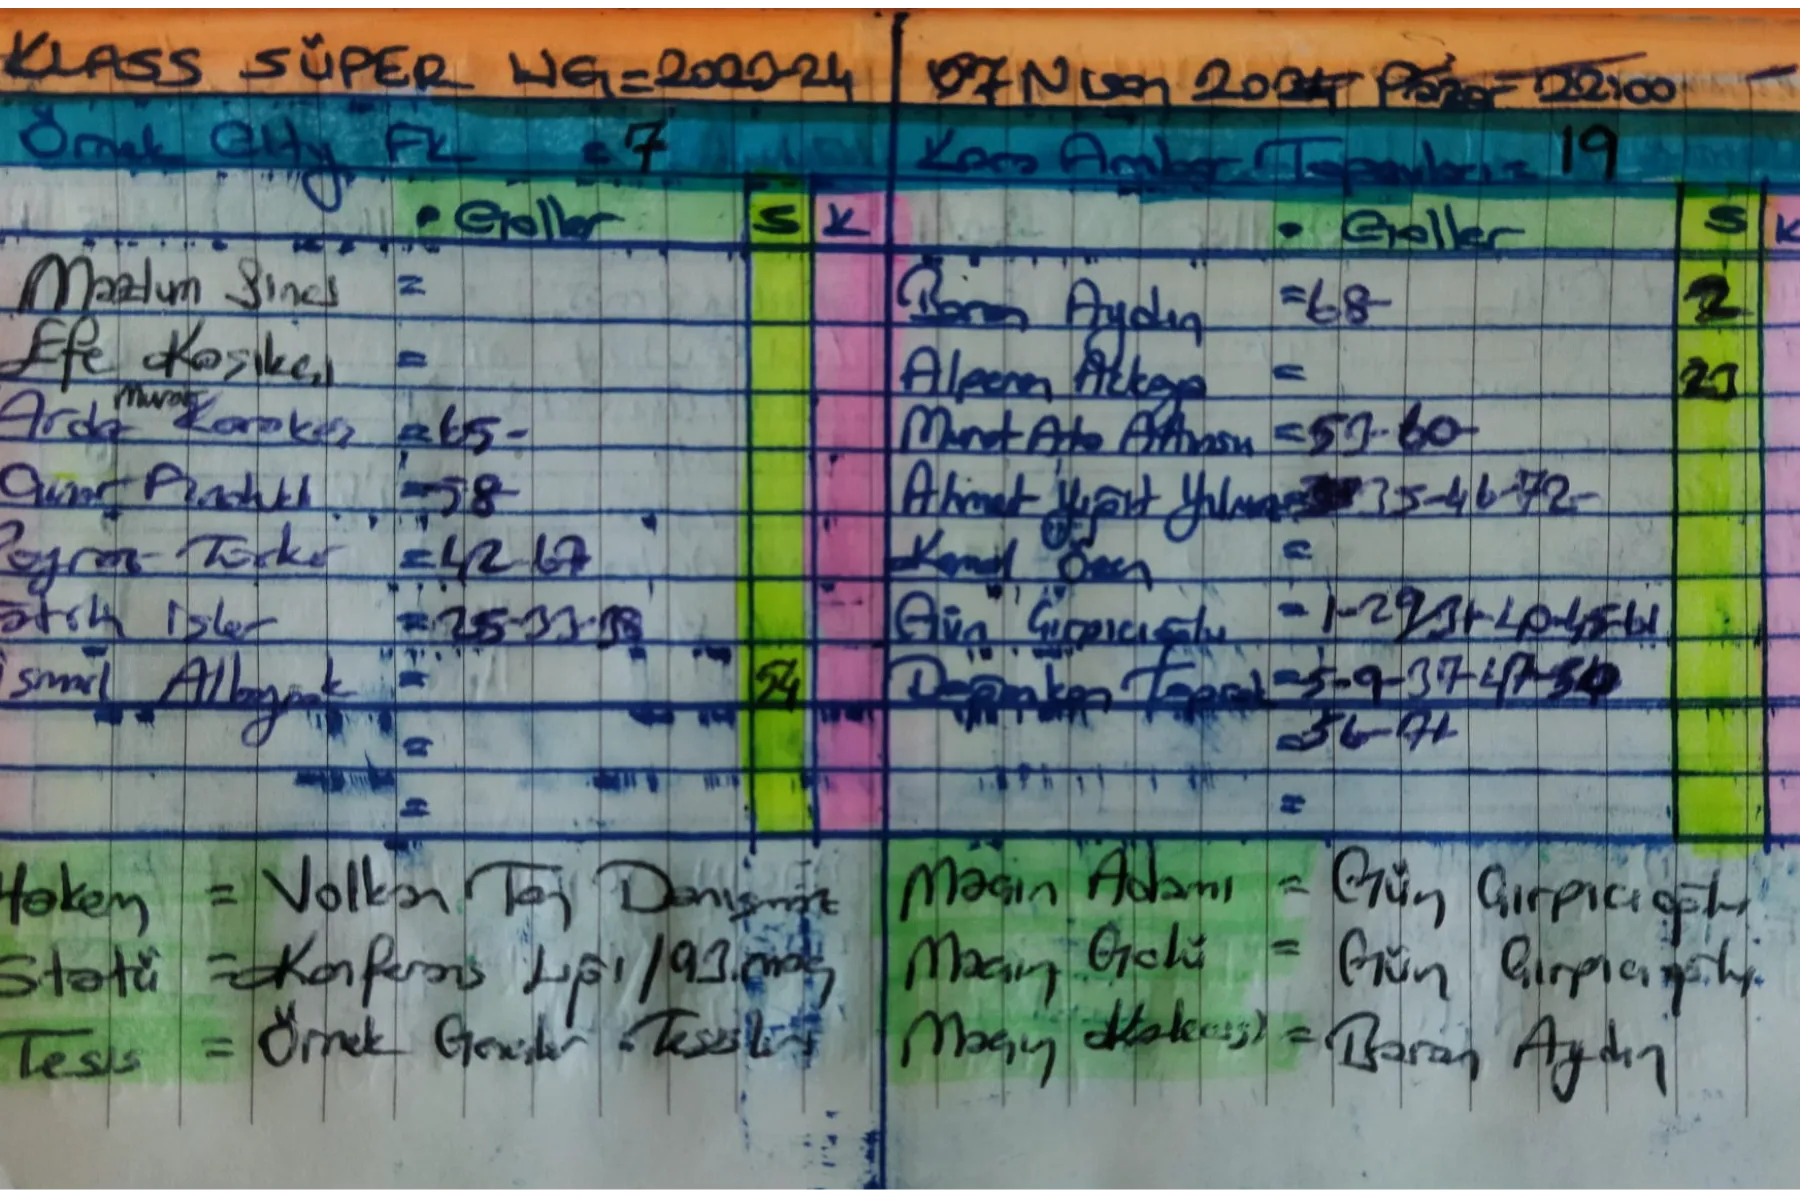 KLASS SÜPER LİG=2023-24
07 Nisan 2024 Pazar 22:00
Örnek City FK = 7
Kara Ambar Topanlar = 19
• Goller S K
• Goller S K
Mazlum =
Baran Aydın =68- 2
Efe =
Alperen Akkaya = 23
Arda Murat =65-
Murat Ata =53-60-
=58-
Ahmet Yiğit Yılmaz 35-46-72-
Poyraz =42-67
Kemal =
Fatih İşler =25-33-38
Gün Çırpıcıoğlu =1-29-31-40-45-61
İsmail Albayrak = 54
Doğukan Toprak =5-9-37-47-50
=
=56-71
=
=
Hakem = Volkan Taş Danışman
Maçın Adamı = Gün Çırpıcıoğlu
Statü = Konferans Ligi/93.maç
Maçın Golü = Gün Çırpıcıoğlu
Tesis = Örnek Gençler Tesisleri
Maçın Kalecisi = Baran Aydın